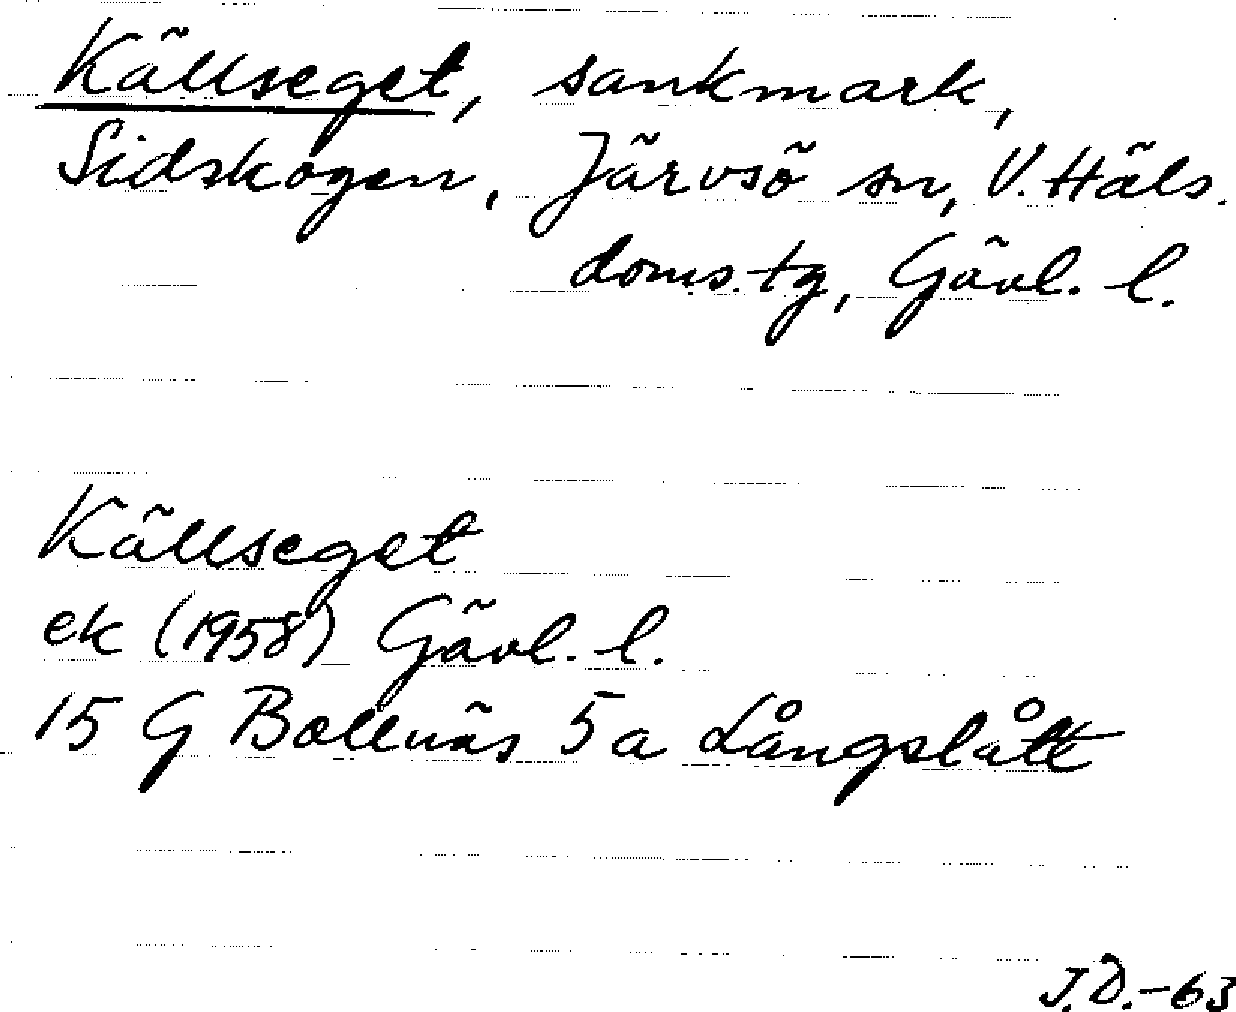 Källseget, sankmark,
Sidskogen, Järvsö sn, V. Häls.
doms.tg, Gävl. l.
Källseget
ek (1958) Gävl. l.
15 G Bollnäs 5 a Långslått
J.D.-63